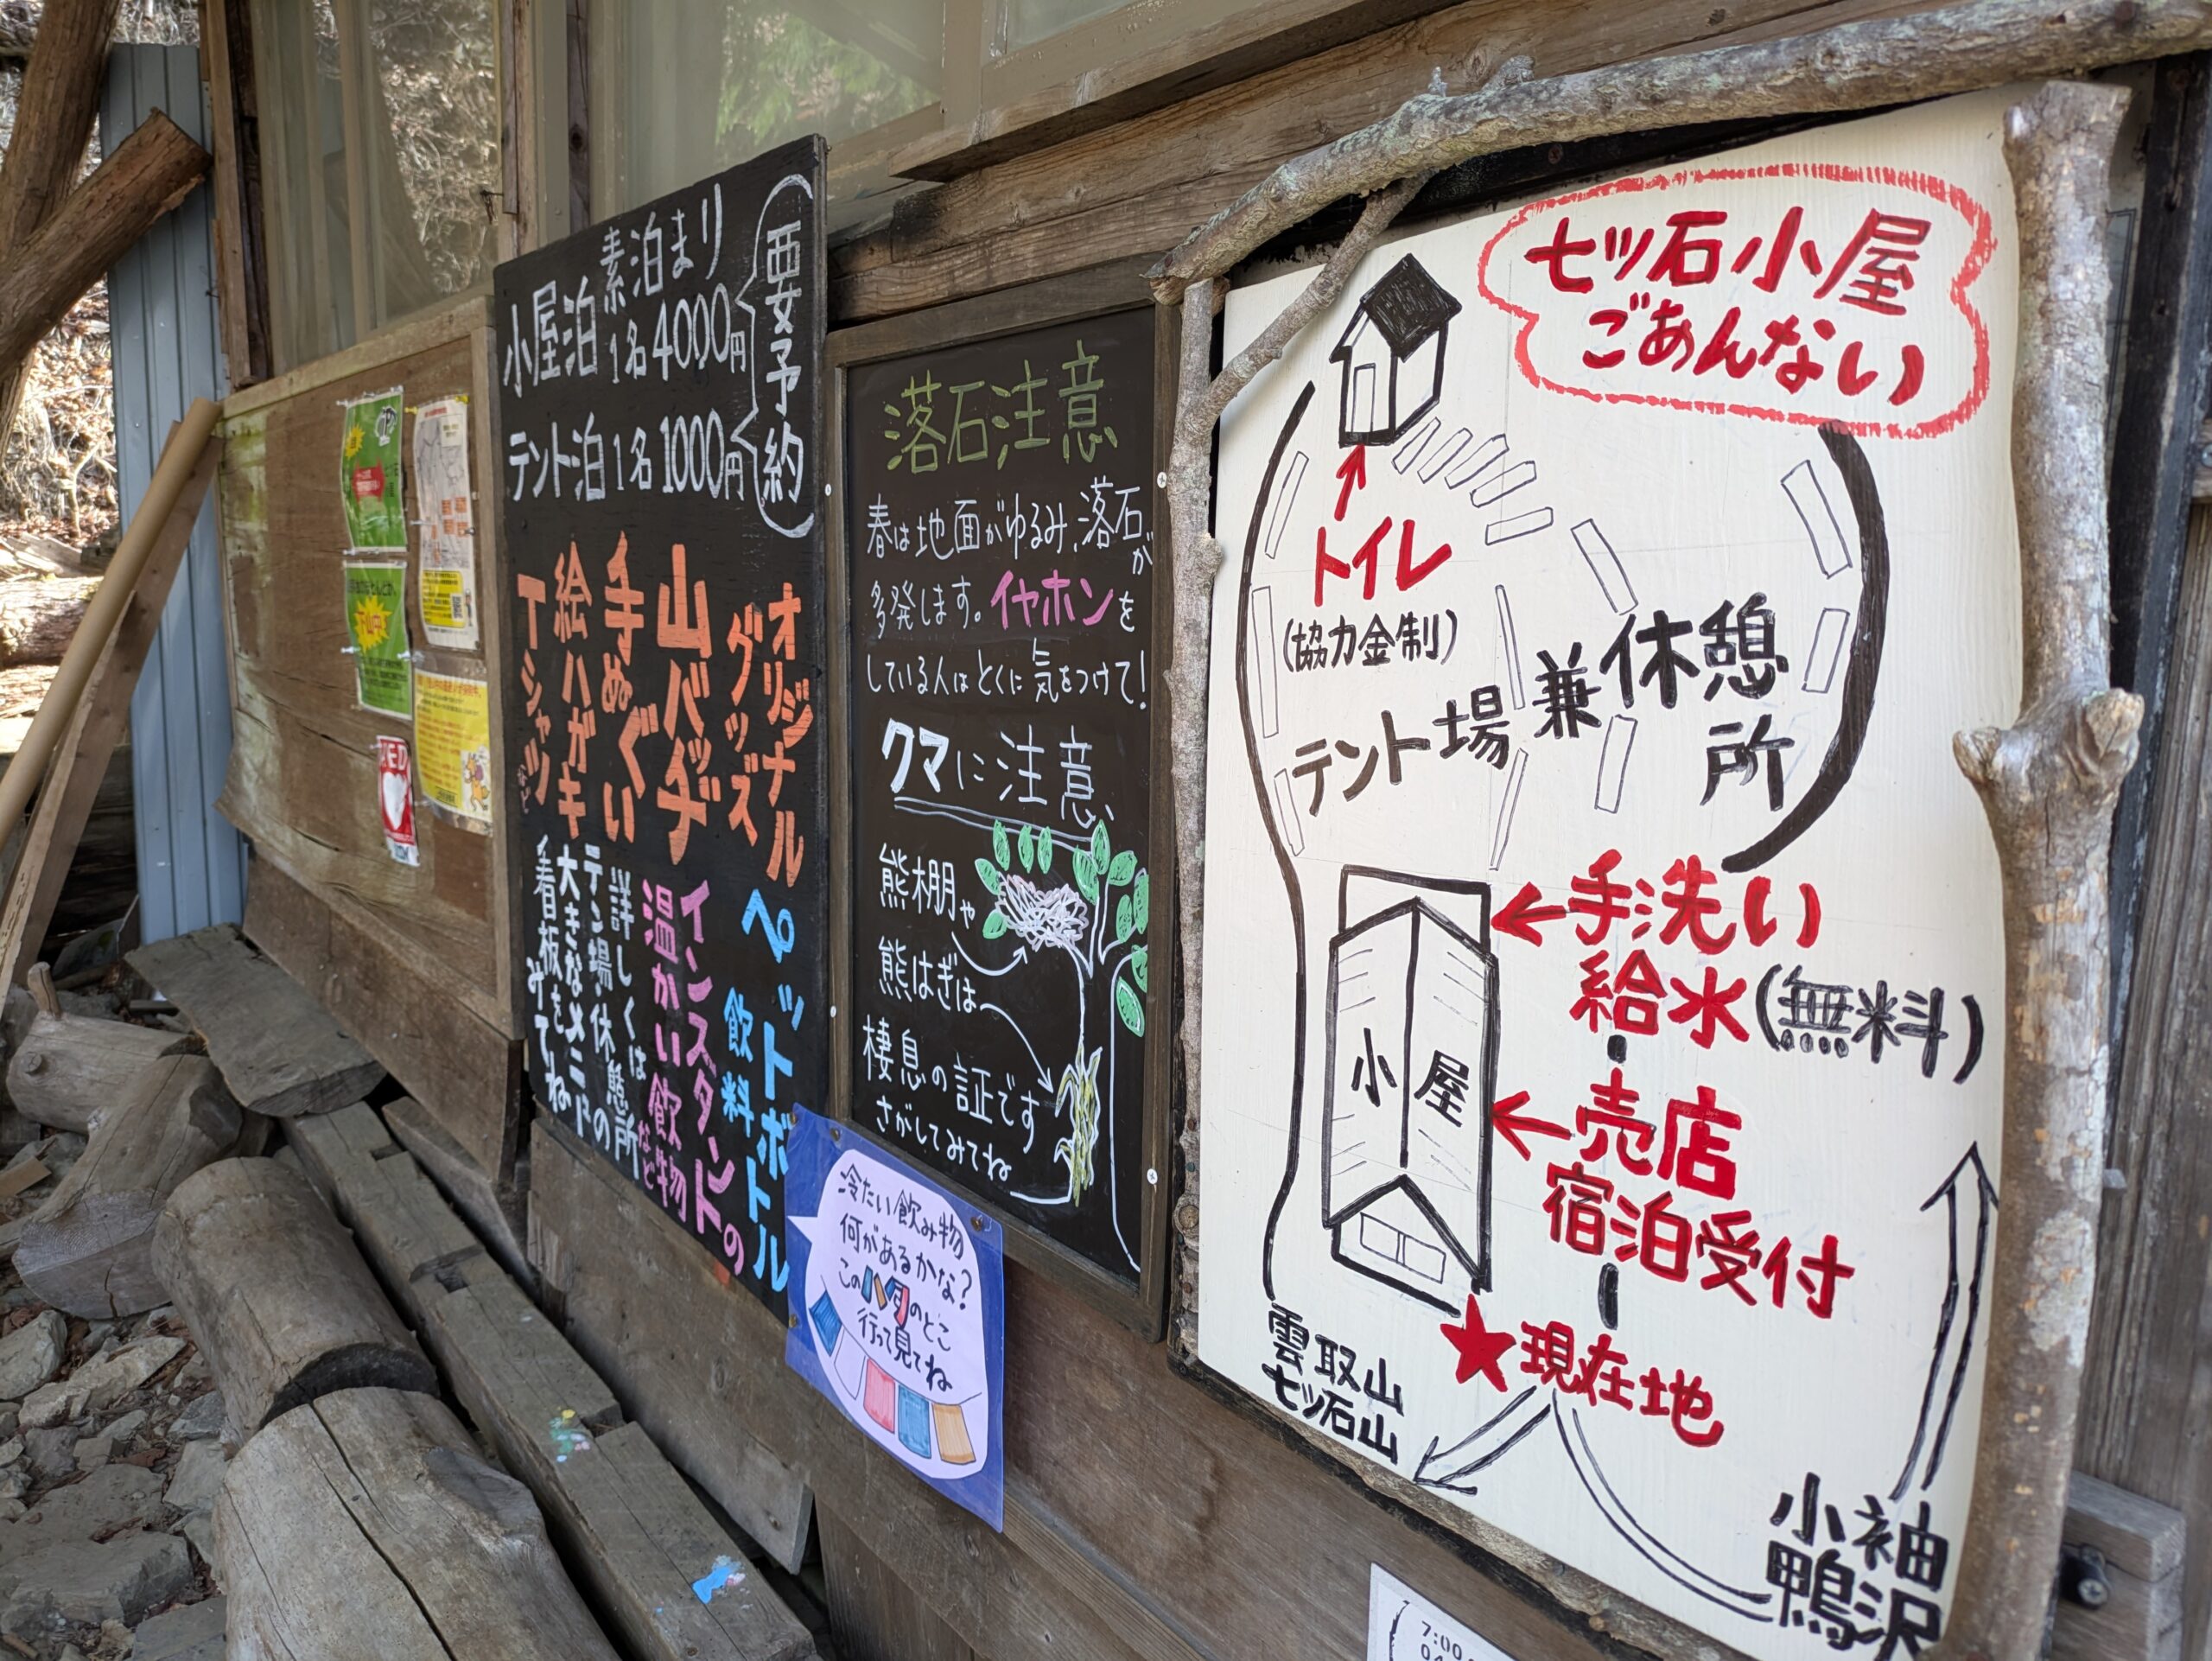 小屋泊 素泊まり
1名 4000円
テント泊 1名 1000円
要予約
オリジナル
グッズ
山バッヂ
手ぬぐい
絵ハガキ
Tシャツ
など
ペットボトル
飲料
インスタントの
温かい飲物
など
詳しくは
テン場・休憩所の
大きなメニューの
看板をみてね
落石注意
春は地面がゆるみ、落石が
多発します。イヤホンを
している人はとくに気をつけて!
クマに注意
熊棚や
熊はぎは
棲息の証です
さがしてみてね
冷たい飲み物
何があるかな?
このハタのとこ
行って見てね
七ツ石小屋
ごあんない
トイレ
(協力金制)
テント場 兼 休憩所
手洗い
給水(無料)
小屋
売店
宿泊受付
現在地
雲取山
七ツ石山
小袖
鴨沢
7:00